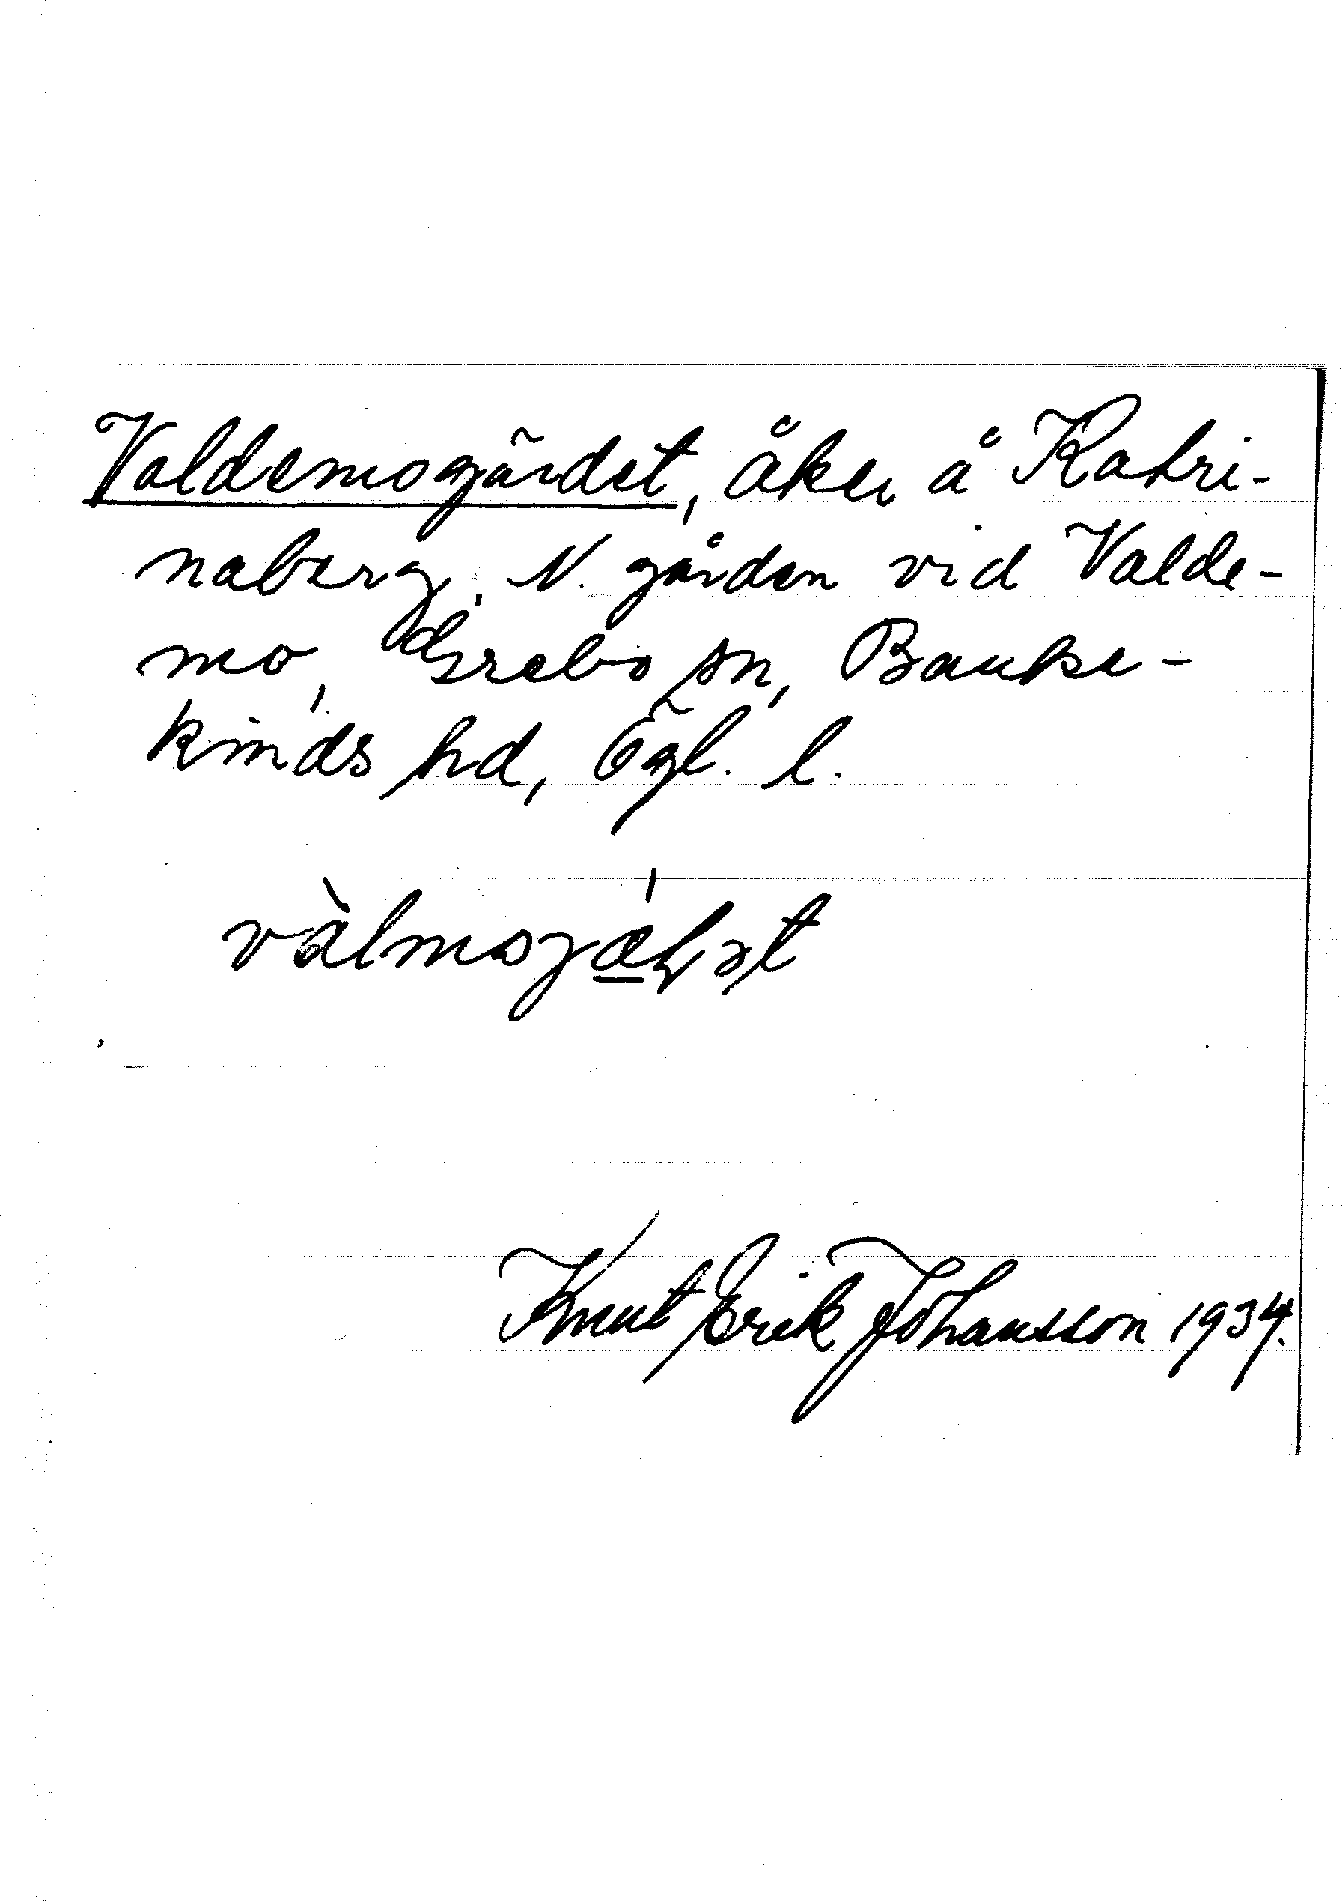 Valdemogärdet, åker å Katri-
naberg, N. gården vid Valde-
mo, Grebo sn, Banke-
kinds hd, Ögl. l.
Knut Erik Johansson 1934.